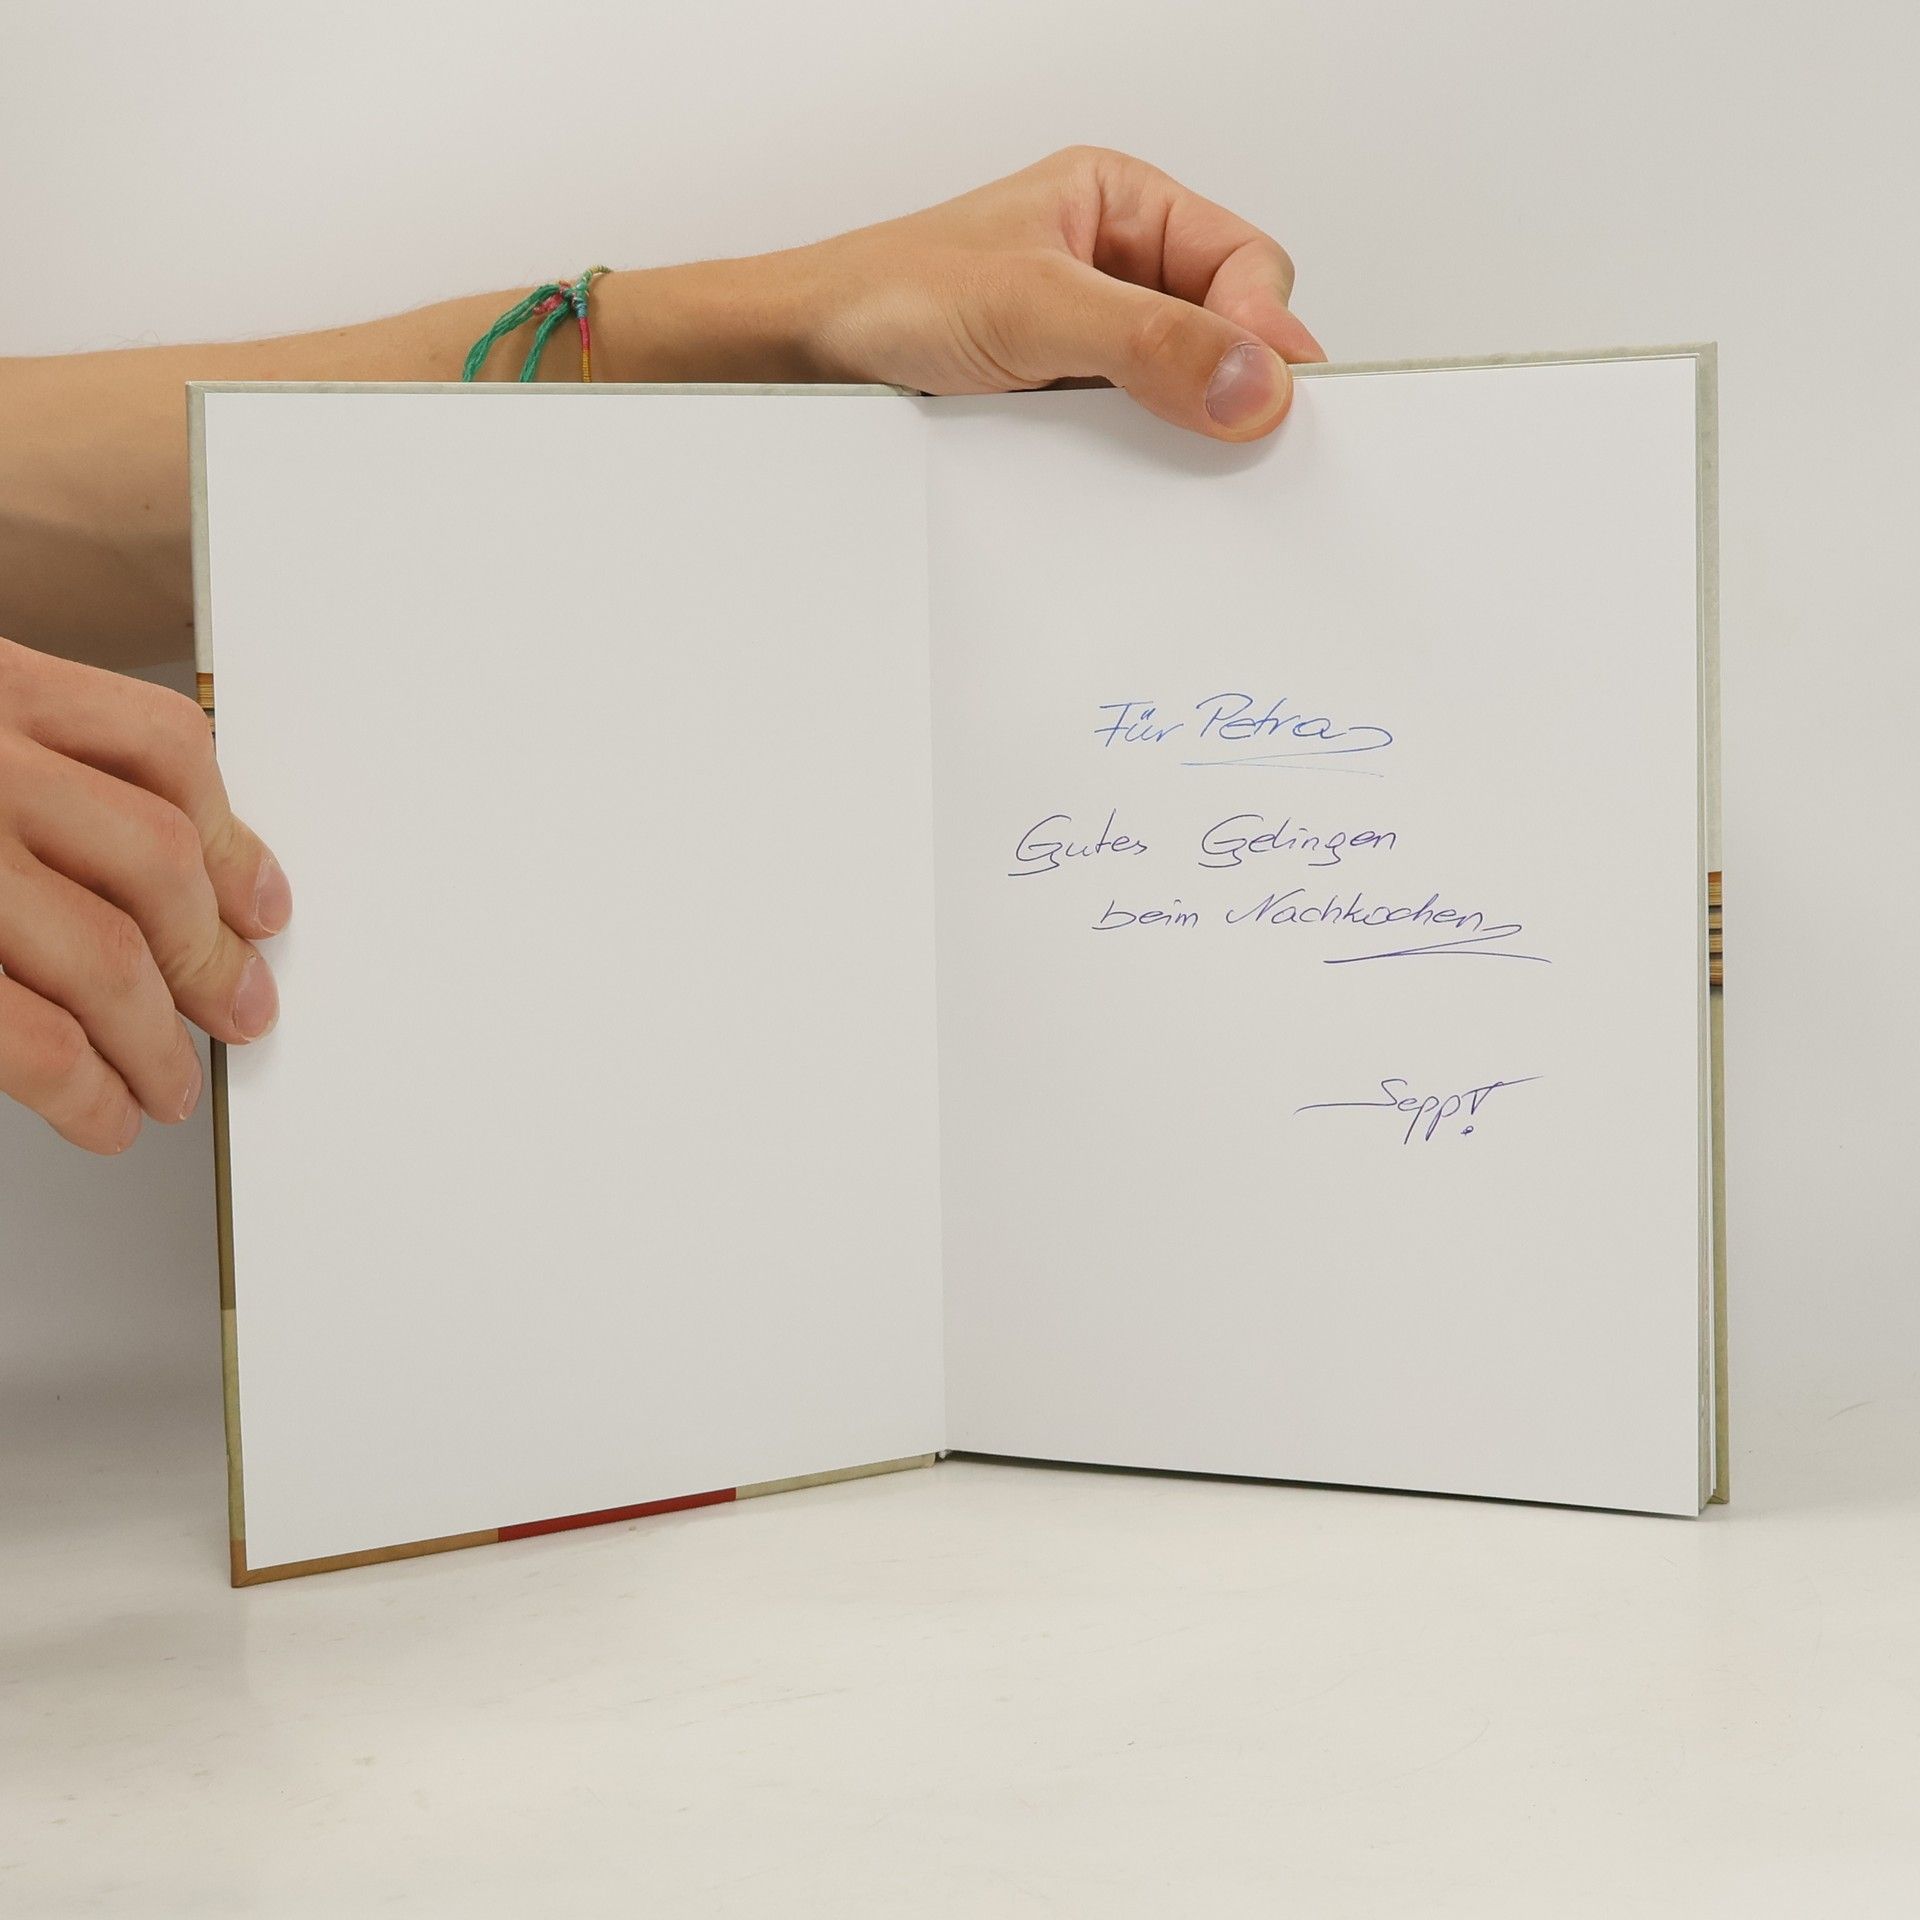 Für Petra
Gutes Gelingen
beim Nachkochen
Sepp!